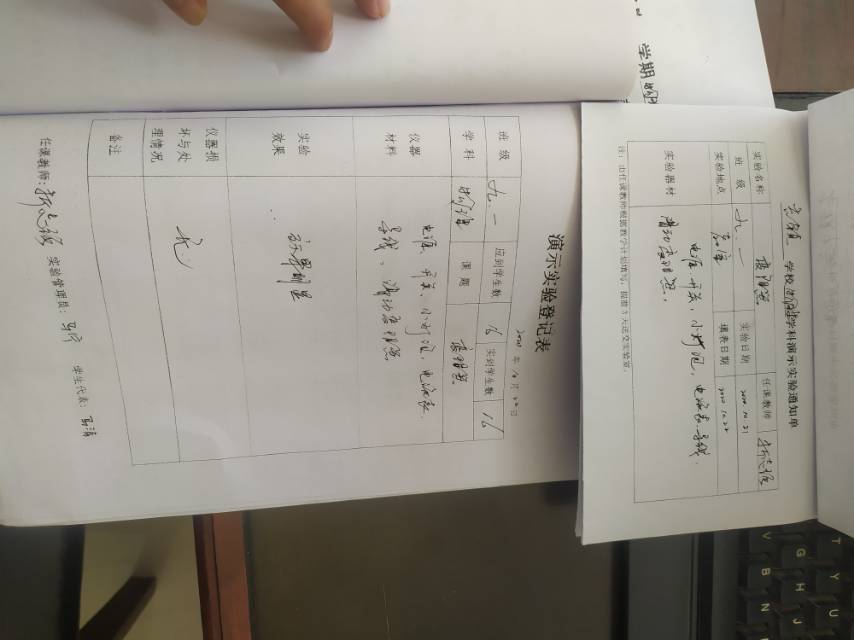 学期
学校 物理 学科演示实验通知单
实验名称 变阻器 任课教师
班级 九.一 实验日期 2020.10.21
实验地点 填表日期 2020.10.22
实验器材 电源、开关、小灯泡、电流表、导线、
滑动变阻器。
注：由任课教师根据教学计划填写，提前3天送交实验室。
演示实验登记表
2020年10月22日
班级 九.一 应到学生数 16 实到学生数 16
学科 物理 课题 变阻器
仪器材料 电源、开关、小灯泡、电流表、
导线、滑动变阻器
实验效果 效果明显
仪器损坏与处理情况 无
备注
任课教师： 实验管理员： 学生代表：
T Y U
G H J
V B N